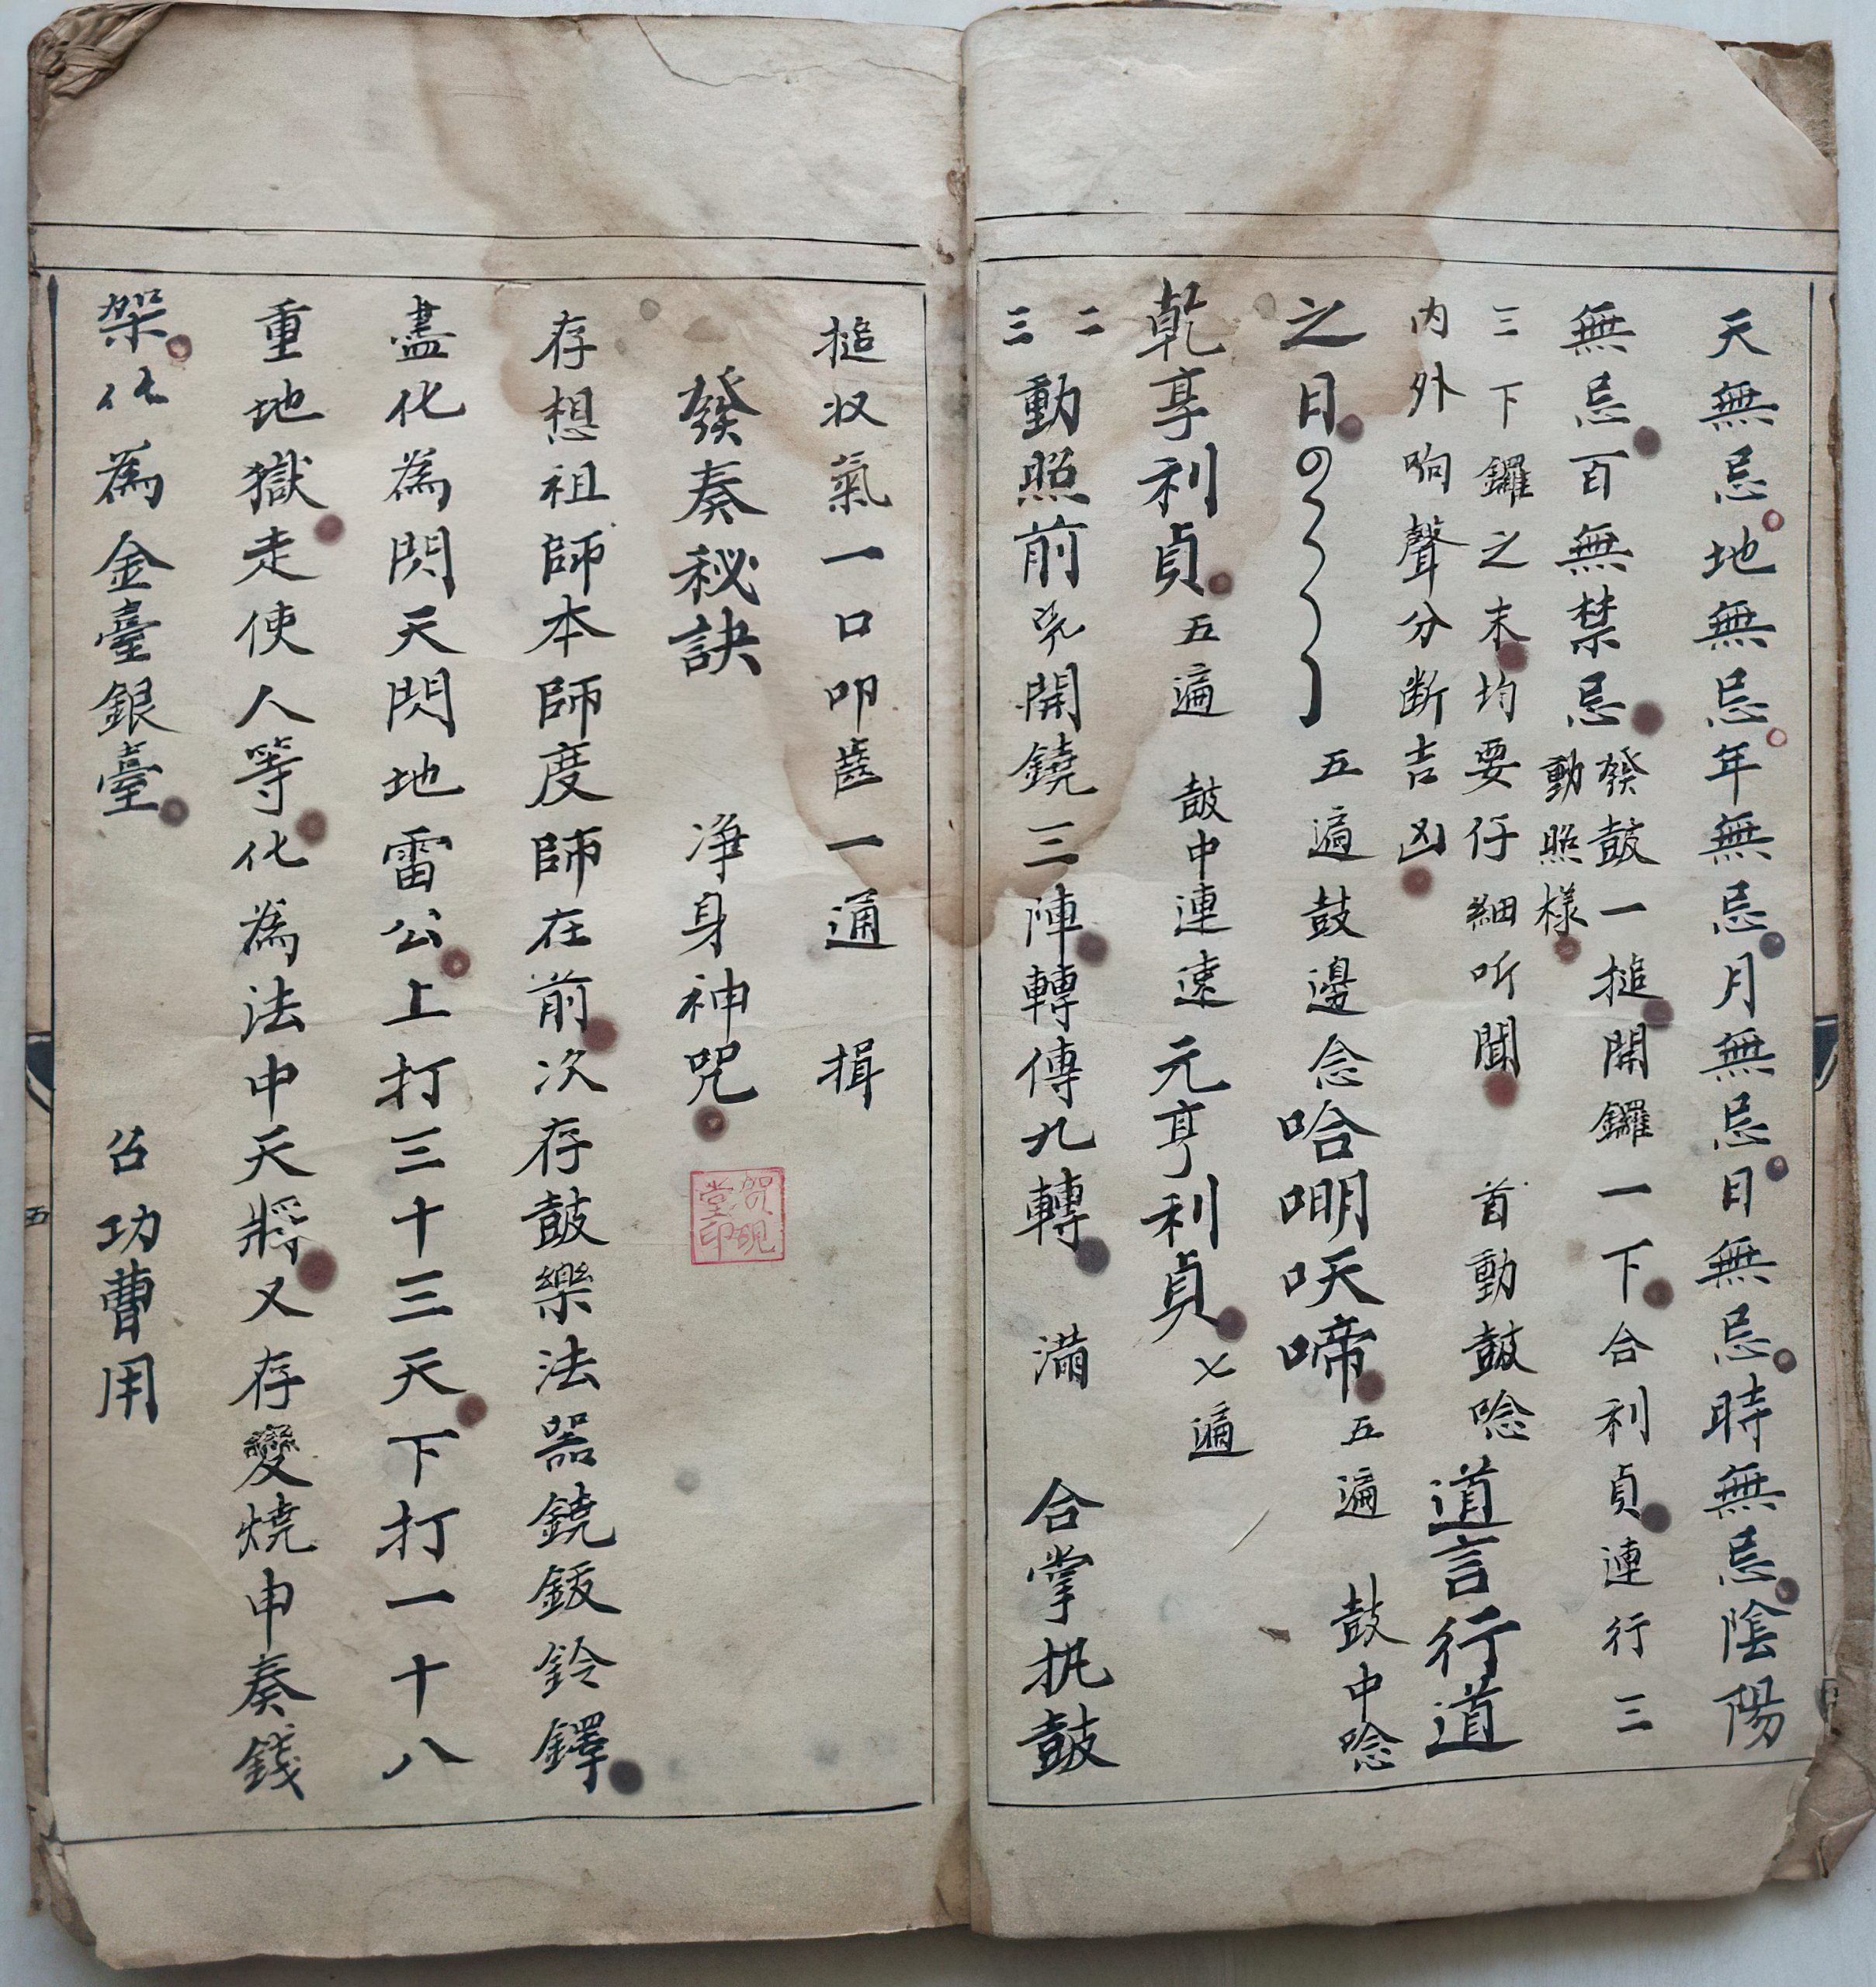 天無忌地無忌年無忌月無忌日無忌時無忌陰陽
無忌百無禁忌
發鼓一搥開鑼一下合利貞連行三
動照樣
三下鑼之末均要仔細听聞　首動鼓唸
內外响聲分断吉凶
道言行道
之日
五遍鼓邊念哈嘲呋啼五遍　鼓中唸
乾亨利貞五遍　鼓中連遠元亨利貞乂遍
二
三
動照前 開鐃三陣轉傳九轉　満　合掌执鼓
搥收氣一口叩齒一通　揖
發奏秘訣　淨身神咒
賀硯堂印
存想祖師本師度師在前次存鼓樂法器鐃鈸鈴鐸
盡化為閃天閃地雷公上打三十三天下打一十八
重地獄走使人等化為法中天將又存變燒申奏錢
架化為金臺銀臺　召功曹用
五